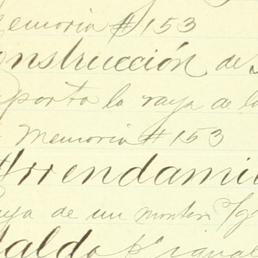 Memoria #153
onstrucción de
porta la raya de la
Memoria #153
Arrendami
de un montón
aldo pr igual